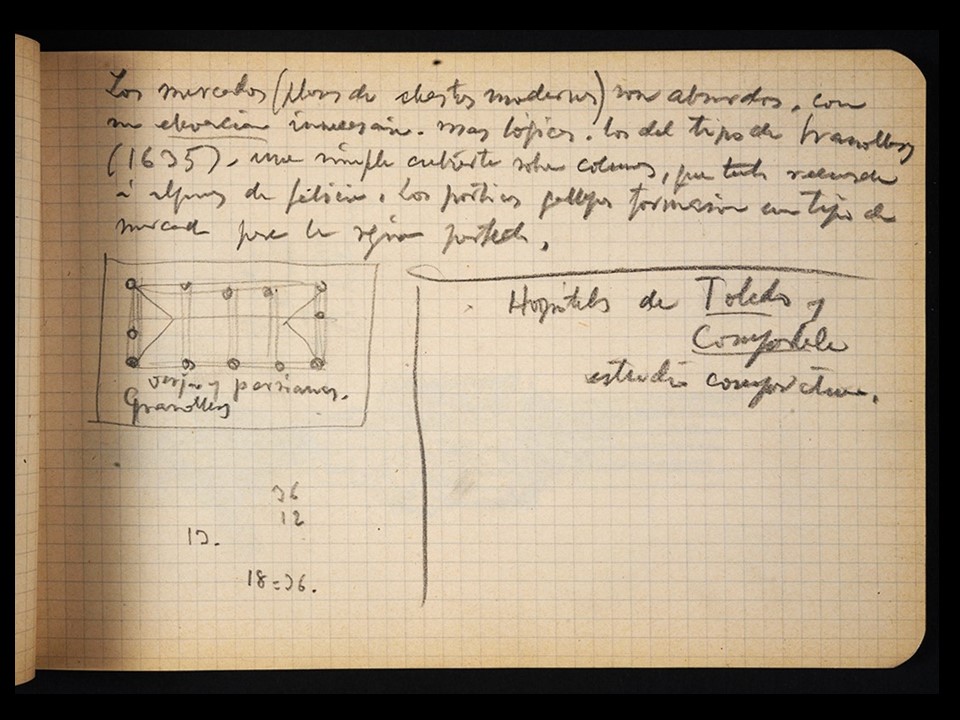 Los mercados (plazas de abastos modernos) son absurdos, con
su elevación innecesaria. Mas lógicos, los del tipo de Granollers
(1635), una simple cubierta sobre columnas, que tanto recuerda
á algunos de Galicia. Los pórticos gallegos formarian un tipo de
mercado para la región
verjas y persianas.
Granollers
36
12
13.
18=36.
Hospitales de Toledo y
Compostela
estudio comparativo.